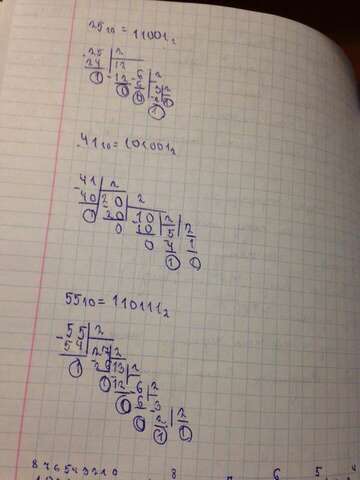 25₁₀ = 11001₂
25 | 2
24 12 2
1 12 6 2
0 6 3 2
0 2 1
1
41₁₀ = 101001₂
41 | 2
40 20 2
1 20 10 2
0 10 5 2
0 4 1
1 0
55₁₀ = 110111₂
55 | 2
54 27 2
1 26 13 2
1 12 6 2
0 6 3 2
0 2 1
1
8 7 6 5 4 3 2 1 0 8 6 5 4